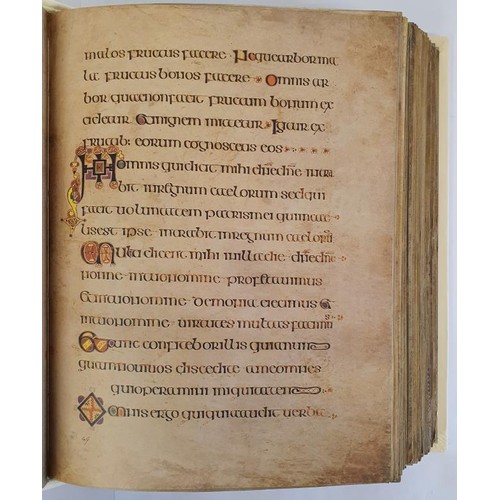 malos fructus facere Neque arbor ma
la fructus bonos facere Omnis ar
bor quae non facit fructum bonum ex
cidetur & in ignem mittetur Igitur ex
fructib: eorum cognoscetis eos
N omnis qui dicit mihi dn̄e dn̄e intra
bit in regnum caelorum sed qui
facit uoluntatem patris mei qui in cae
lis est ipse intrabit in regnum caelorū
Multi dicent mihi in illa die dn̄e dn̄e
nonne in tuo nomine profetauimus
& in tuo nomine demonia eiecimus &
in tuo nomine uirtutes multas fecimus
Et tunc confitebor illis quia num
quam noui uos discedite a me omnes
qui operamini iniquitatem
Omnis ergo qui audit uerba